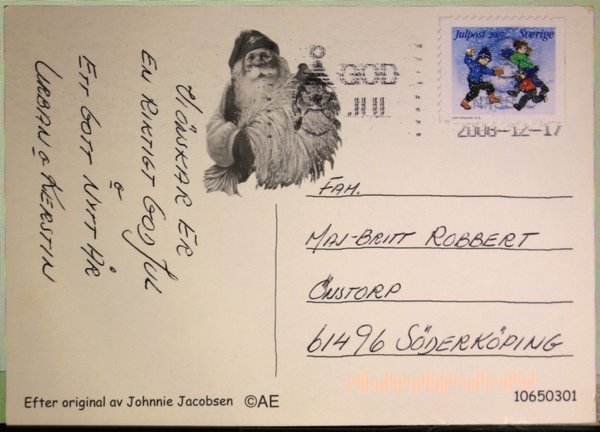 Vi önskar er
en riktigt God Jul
o
Ett Gott Nytt År
Urban o Kerstin
Julpost 2007 Sverige
GOD
JUL
2008-12-17
Fam.
Maj-Britt Robbert
Önstorp
61496 Söderköping
Efter original av Johnnie Jacobsen ©AE
10650301